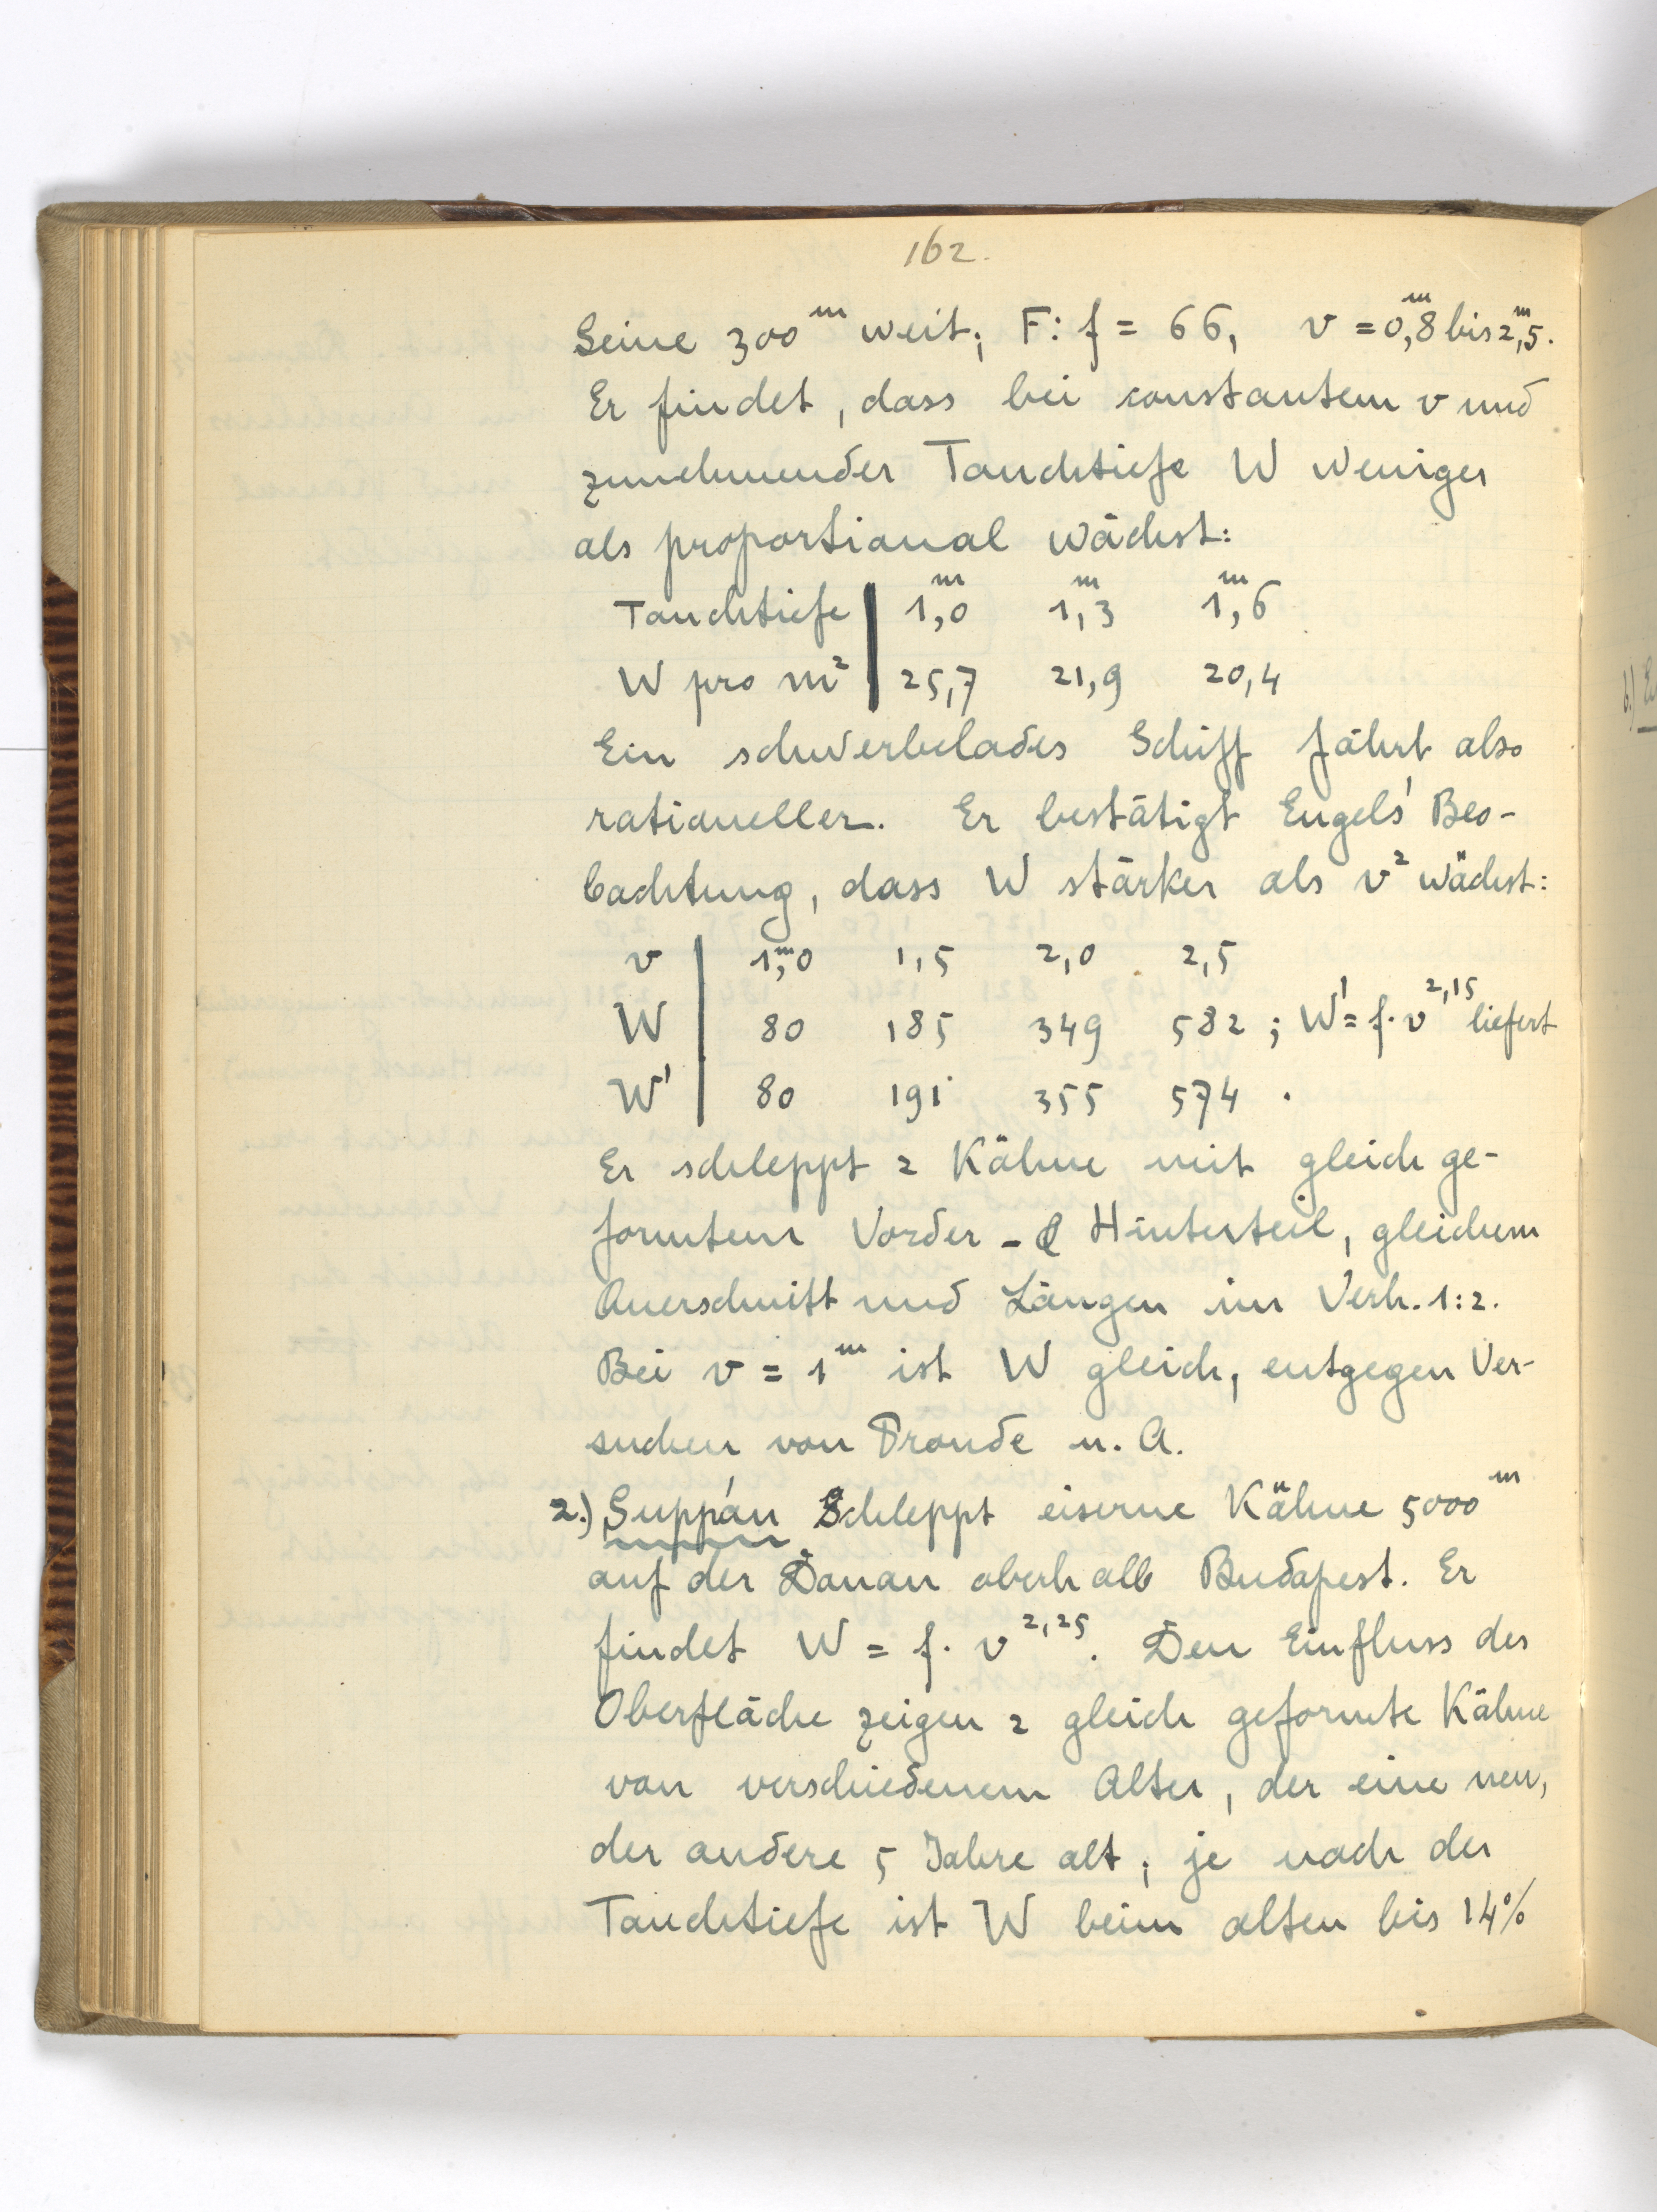 162.
Seine 300ᵐ weit; F:f = 66, v = 0,8ᵐ bis 2,5ᵐ.
Er findet, dass bei constantem v und
zunehmender Tauchtiefe W weniger
als proportional wächst:
Tauchtiefe | 1,0ᵐ 1,3ᵐ 1,6ᵐ
W pro m² | 25,7 21,9 20,4
Ein schwerbelades Schiff fährt also
rationeller. Er bestätigt Engels' Beo-
bachtung, dass W stärker als v² wächst:
v | 1,0ᵐ 1,5 2,0 2,5
W | 80 185 349 582 ; W' = f. v^2,15 liefert
W' | 80 191 355 574 .
Er schleppt 2 Kähne mit gleich ge-
formtem Vorder- & Hinterteil, gleichem
Querschnitt und Längen im Verh. 1:2.
Bei v = 1ᵐ ist W gleich, entgegen Ver-
suchen von Froude u. A.
2.) Suppán schleppt eiserne Kähne 5000ᵐ
auf der Donau oberhalb Budapest. Er
findet W = f. v^2,25. Den Einfluss der
Oberfläche zeigen 2 gleich geformte Kähne
von verschiedenem Alter, der eine neu,
der andere 5 Jahre alt; je nach der
Tauchtiefe ist W beim alten bis 14%